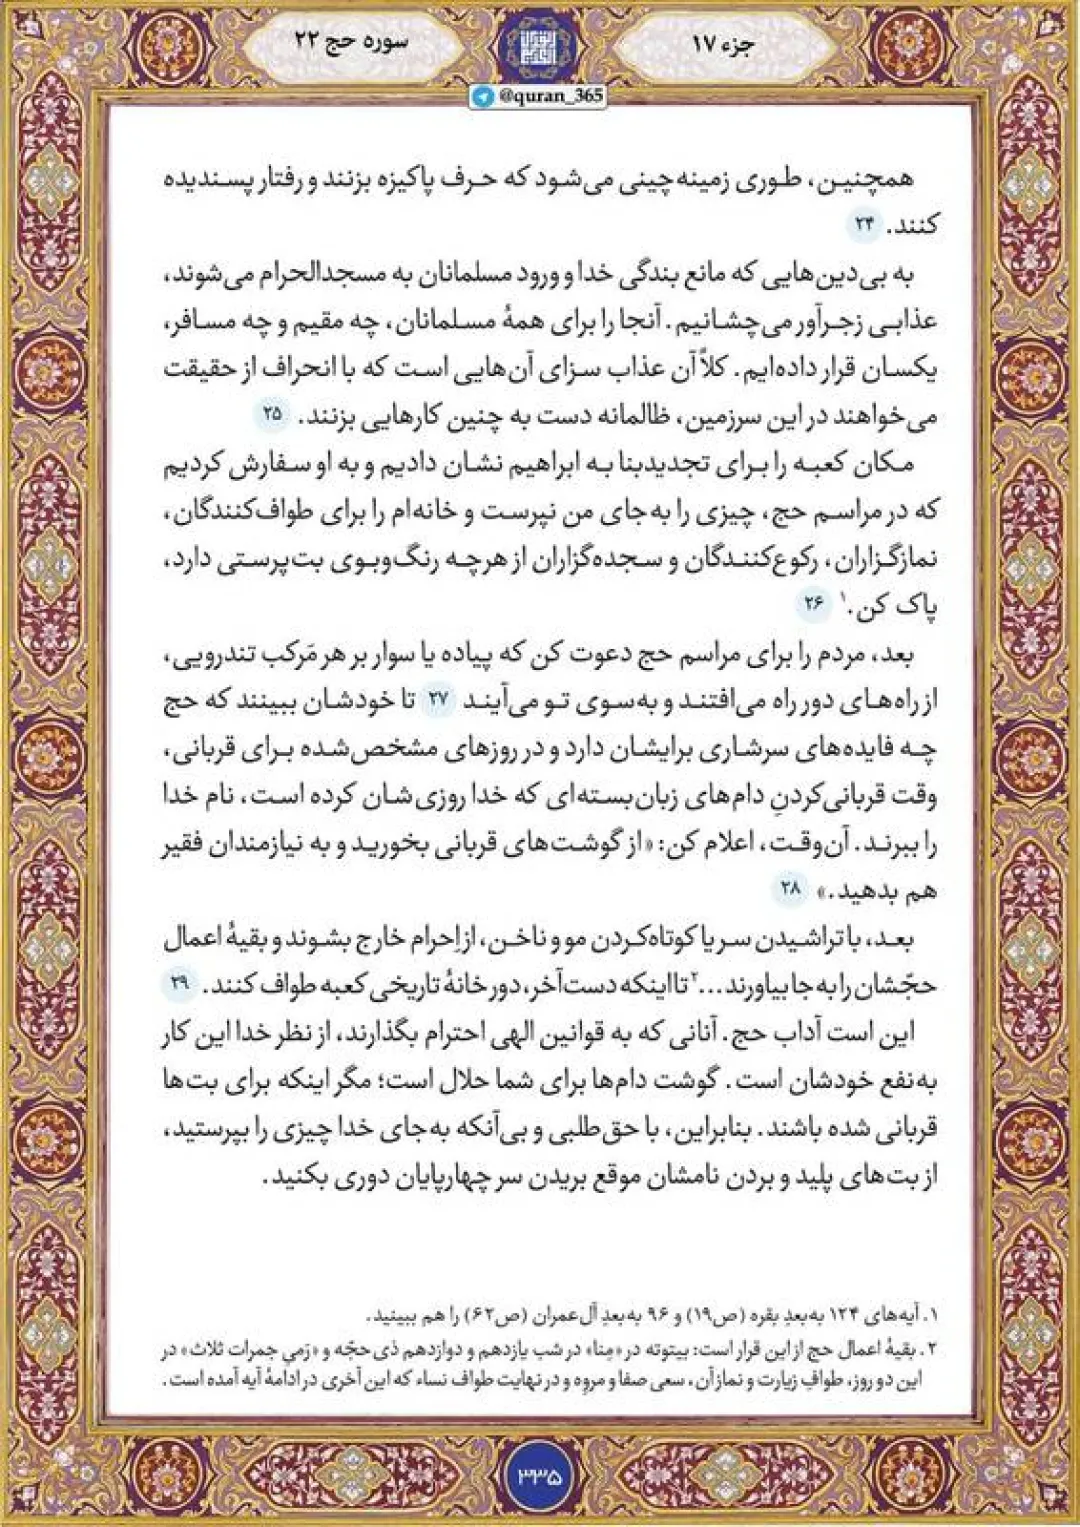 جزء ۱۷
سوره حج ۲۲
@quran_365
همچنین، طوری زمینه‌چینی می‌شود که حرف پاکیزه بزنند و رفتار پسندیده
کنند. ۲۴
به بی‌دین‌هایی که مانع بندگی خدا و ورود مسلمانان به مسجدالحرام می‌شوند،
عذابی زجرآور می‌چشانیم. آنجا را برای همهٔ مسلمانان، چه مقیم و چه مسافر،
یکسان قرار داده‌ایم. کلاً آن عذاب سزای آن‌هایی است که با انحراف از حقیقت
می‌خواهند در این سرزمین، ظالمانه دست به چنین کارهایی بزنند. ۲۵
مکان کعبه را برای تجدیدبنا به ابراهیم نشان دادیم و به او سفارش کردیم
که در مراسم حج، چیزی را به‌جای من نپرست و خانه‌ام را برای طواف‌کنندگان،
نمازگزاران، رکوع‌کنندگان و سجده‌گزاران از هرچه رنگ‌وبوی بت‌پرستی دارد،
پاک کن.۱ ۲۶
بعد، مردم را برای مراسم حج دعوت کن که پیاده یا سوار بر هر مَرکب تندرویی،
از راه‌های دور راه می‌افتند و به‌سوی تو می‌آیند ۲۷ تا خودشان ببینند که حج
چه فایده‌های سرشاری برایشان دارد و در روزهای مشخص‌شده برای قربانی،
وقت قربانی‌کردنِ دام‌های زبان‌بسته‌ای که خدا روزی‌شان کرده است، نام خدا
را ببرند. آن‌وقت، اعلام کن: «از گوشت‌های قربانی بخورید و به نیازمندان فقیر
هم بدهید.» ۲۸
بعد، با تراشیدن سر یا کوتاه‌کردن مو و ناخن، از اِحرام خارج بشوند و بقیهٔ اعمال
حجّشان را به جا بیاورند...۲ تا اینکه دست‌آخر، دور خانهٔ تاریخی کعبه طواف کنند. ۲۹
این است آداب حج. آنانی که به قوانین الهی احترام بگذارند، از نظر خدا این کار
به‌نفع خودشان است. گوشت دام‌ها برای شما حلال است؛ مگر اینکه برای بت‌ها
قربانی شده باشند. بنابراین، با حق‌طلبی و بی‌آنکه به‌جای خدا چیزی را بپرستید،
از بت‌های پلید و بردن نامشان موقع بریدن سر چهارپایان دوری بکنید.
۱. آیه‌های ۱۲۴ به‌بعدِ بقره (ص۱۹) و ۹۶ به‌بعدِ آل‌عمران (ص۶۲) را هم ببینید.
۲. بقیهٔ اعمال حج از این قرار است: بیتوته در «مِنا» در شب یازدهم و دوازدهم ذی‌حجّه و «رَمیِ جمرات ثلاث» در
این دو روز، طوافِ زیارت و نماز آن، سعی صفا و مروه و در نهایت طواف نساء که این آخری در ادامهٔ آیه آمده است.
۳۳۵